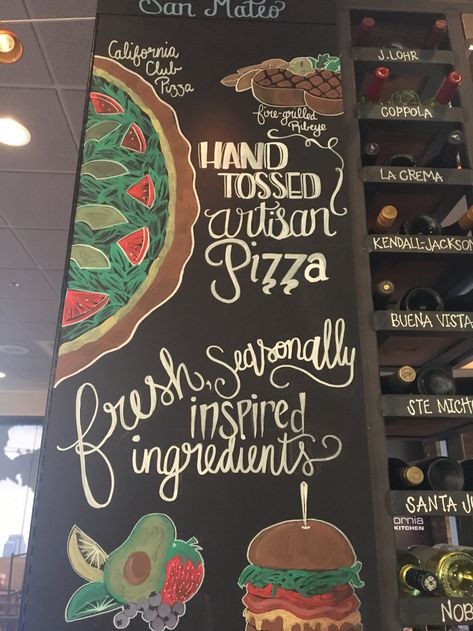 San Mateo
California
Club
Pizza
fire-grilled
Ribeye
HAND
TOSSED
artisan
Pizza
fresh, seasonally
inspired
ingredients
J. LOHR
COPPOLA
LA CREMA
KENDALL-JACKSON
BUENA VISTA
STE MICH
SANTA
ornia
KITCHEN
NOB